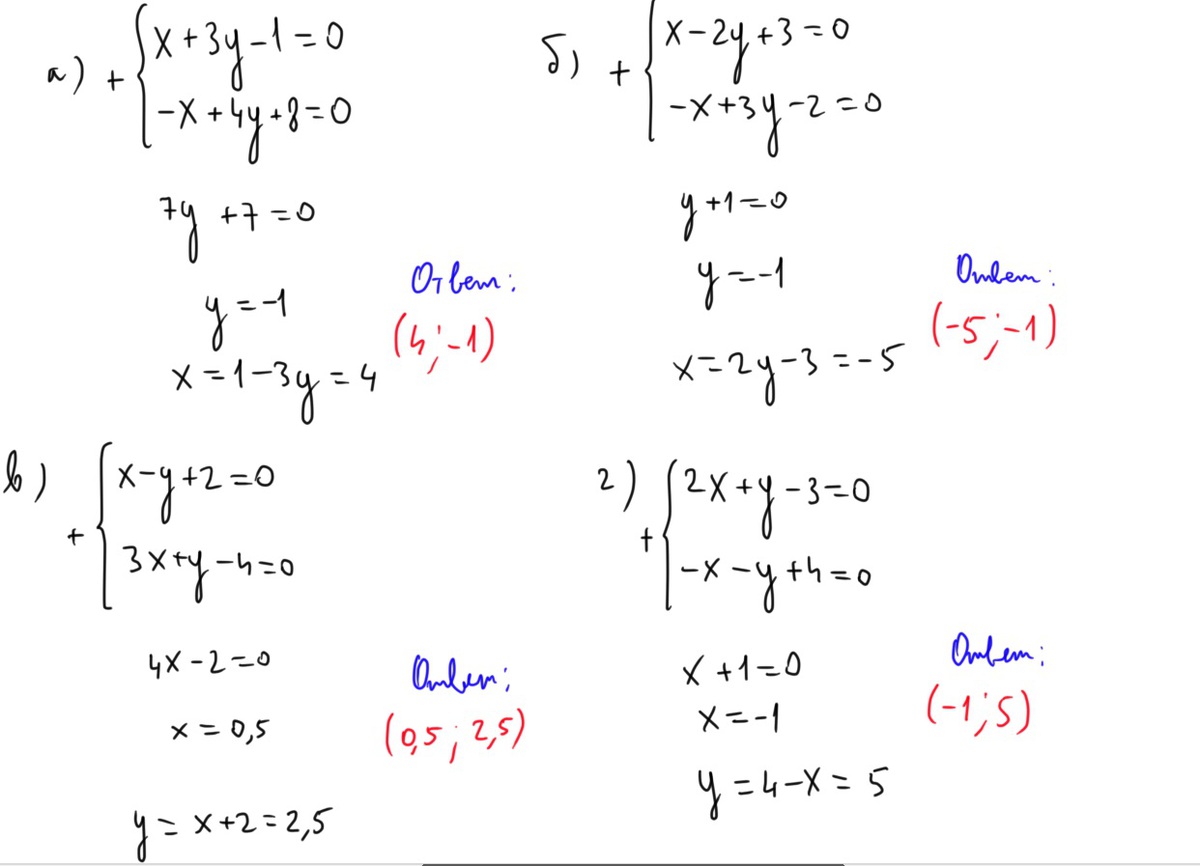 а) + { x + 3y - 1 = 0
-x + 4y + 8 = 0
7y + 7 = 0
y = -1
x = 1 - 3y = 4
Ответ:
(4; -1)
б) + { x - 2y + 3 = 0
-x + 3y - 2 = 0
y + 1 = 0
y = -1
x = 2y - 3 = -5
Ответ:
(-5; -1)
в) + { x - y + 2 = 0
3x + y - 4 = 0
4x - 2 = 0
x = 0,5
y = x + 2 = 2,5
Ответ:
(0,5; 2,5)
г) + { 2x + y - 3 = 0
-x - y + 4 = 0
x + 1 = 0
x = -1
y = 4 - x = 5
Ответ:
(-1; 5)